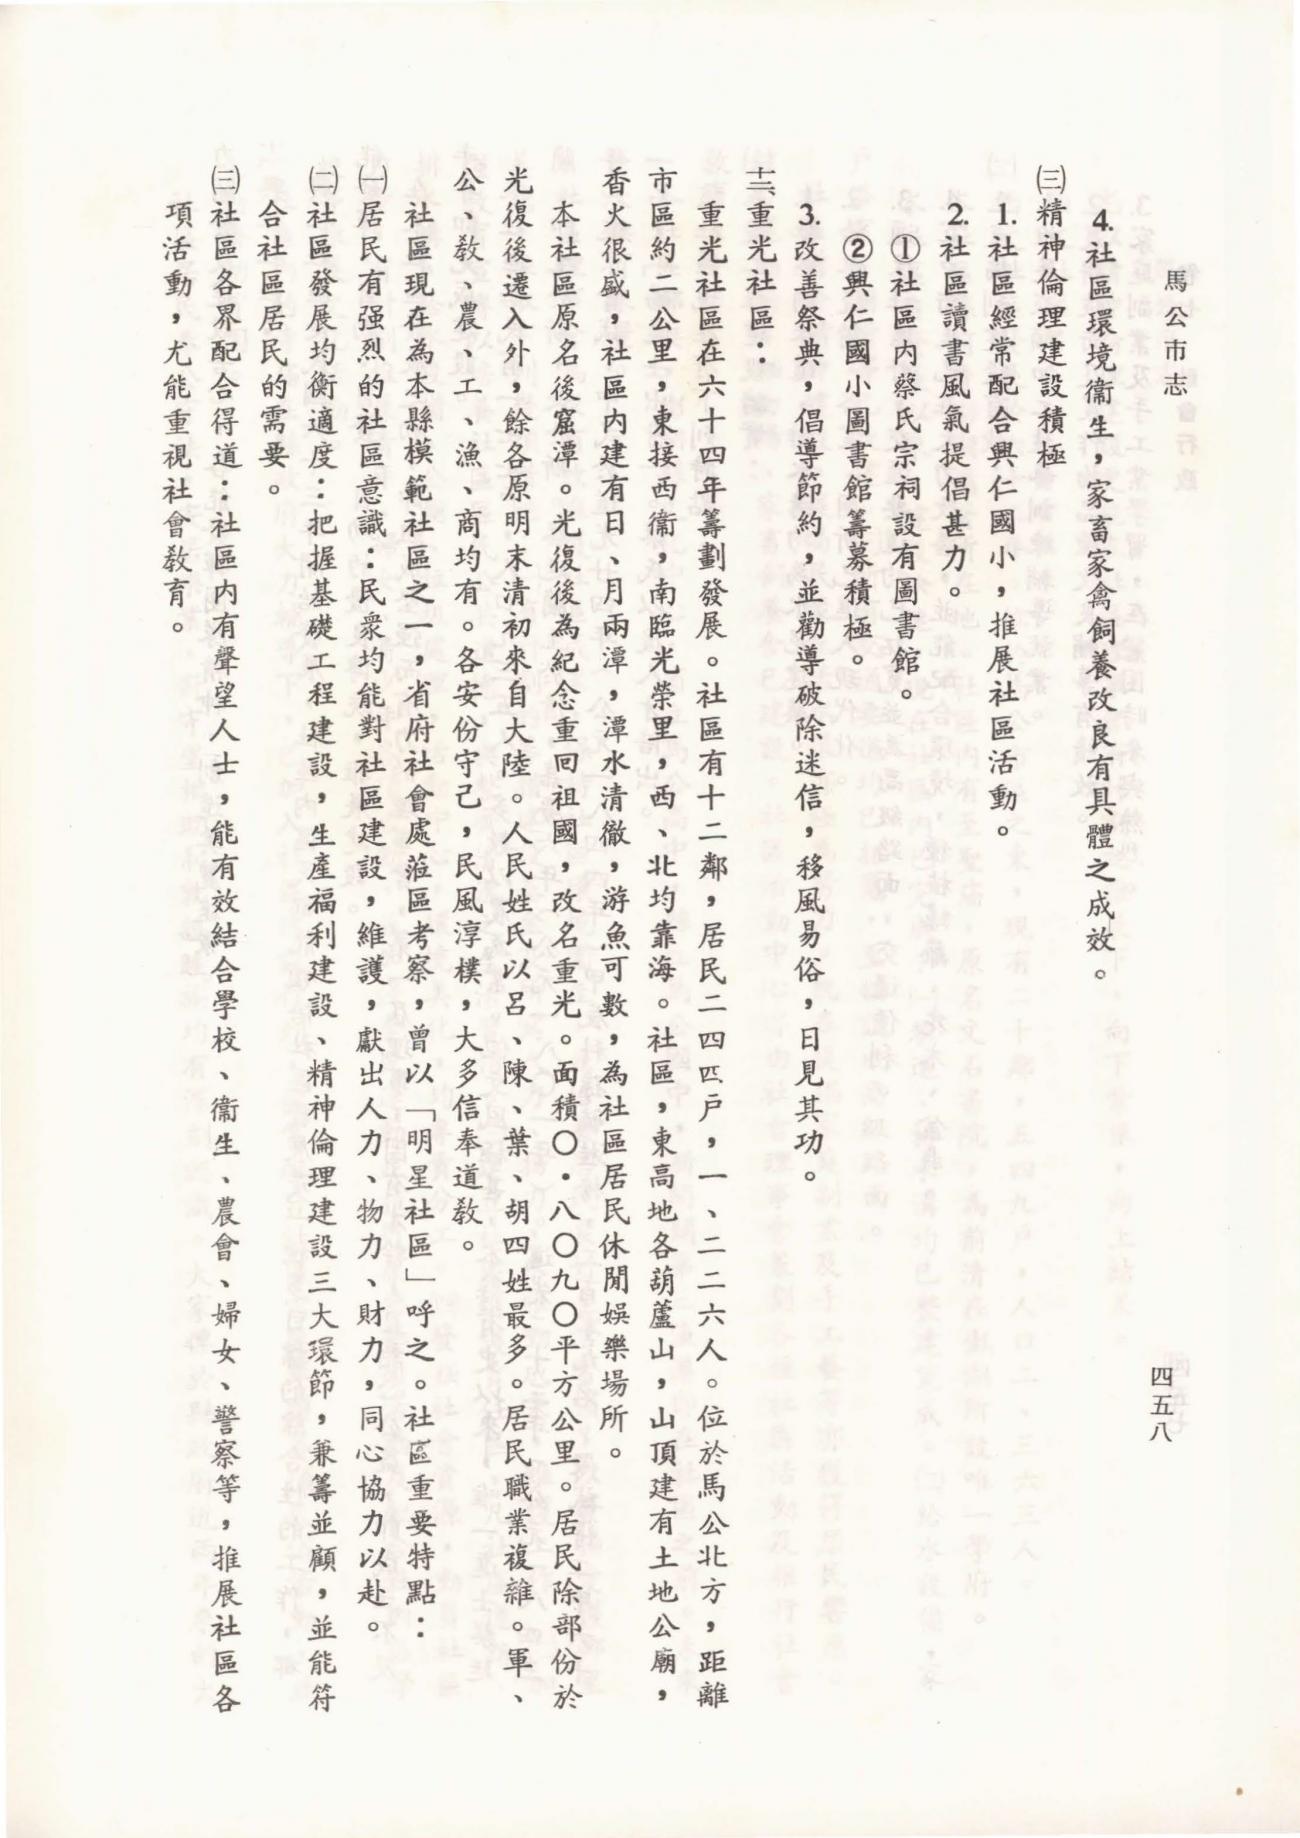 馬公市志
四五八
4.社區環境衞生，家畜家禽飼養改良有具體之成效。
㈢精神倫理建設積極
1.社區經常配合興仁國小，推展社區活動。
2.社區讀書風氣提倡甚力。
①社區內蔡氏宗祠設有圖書館。
②興仁國小圖書館籌募積極。
3.改善祭典，倡導節約，並勸導破除迷信，移風易俗，日見其功。
十三、重光社區：
重光社區在六十四年籌劃發展。社區有十二鄰，居民二四四戶，一、二二六人。位於馬公北方，距離
市區約二公里，東接西衞，南臨光榮里，西、北均靠海。社區，東高地各葫蘆山，山頂建有土地公廟，
香火很盛，社區內建有日、月兩潭，潭水清徹，游魚可數，為社區居民休閒娛樂場所。
本社區原名後窟潭。光復後為紀念重回祖國，改名重光。面積〇・八〇九〇平方公里。居民除部份於
光復後遷入外，餘各原明末清初來自大陸。人民姓氏以呂、陳、葉、胡四姓最多。居民職業複雜。軍、
公、敎、農、工、漁、商均有。各安份守己，民風淳樸，大多信奉道敎。
社區現在為本縣模範社區之一，省府社會處蒞區考察，曾以「明星社區」呼之。社區重要特點：
㈠居民有强烈的社區意識：民衆均能對社區建設，維護，獻出人力、物力、財力，同心協力以赴。
㈡社區發展均衡適度：把握基礎工程建設，生產福利建設、精神倫理建設三大環節，兼籌並顧，並能符
合社區居民的需要。
㈢社區各界配合得道：社區內有聲望人士，能有效結合學校、衞生、農會、婦女、警察等，推展社區各
項活動，尤能重視社會敎育。